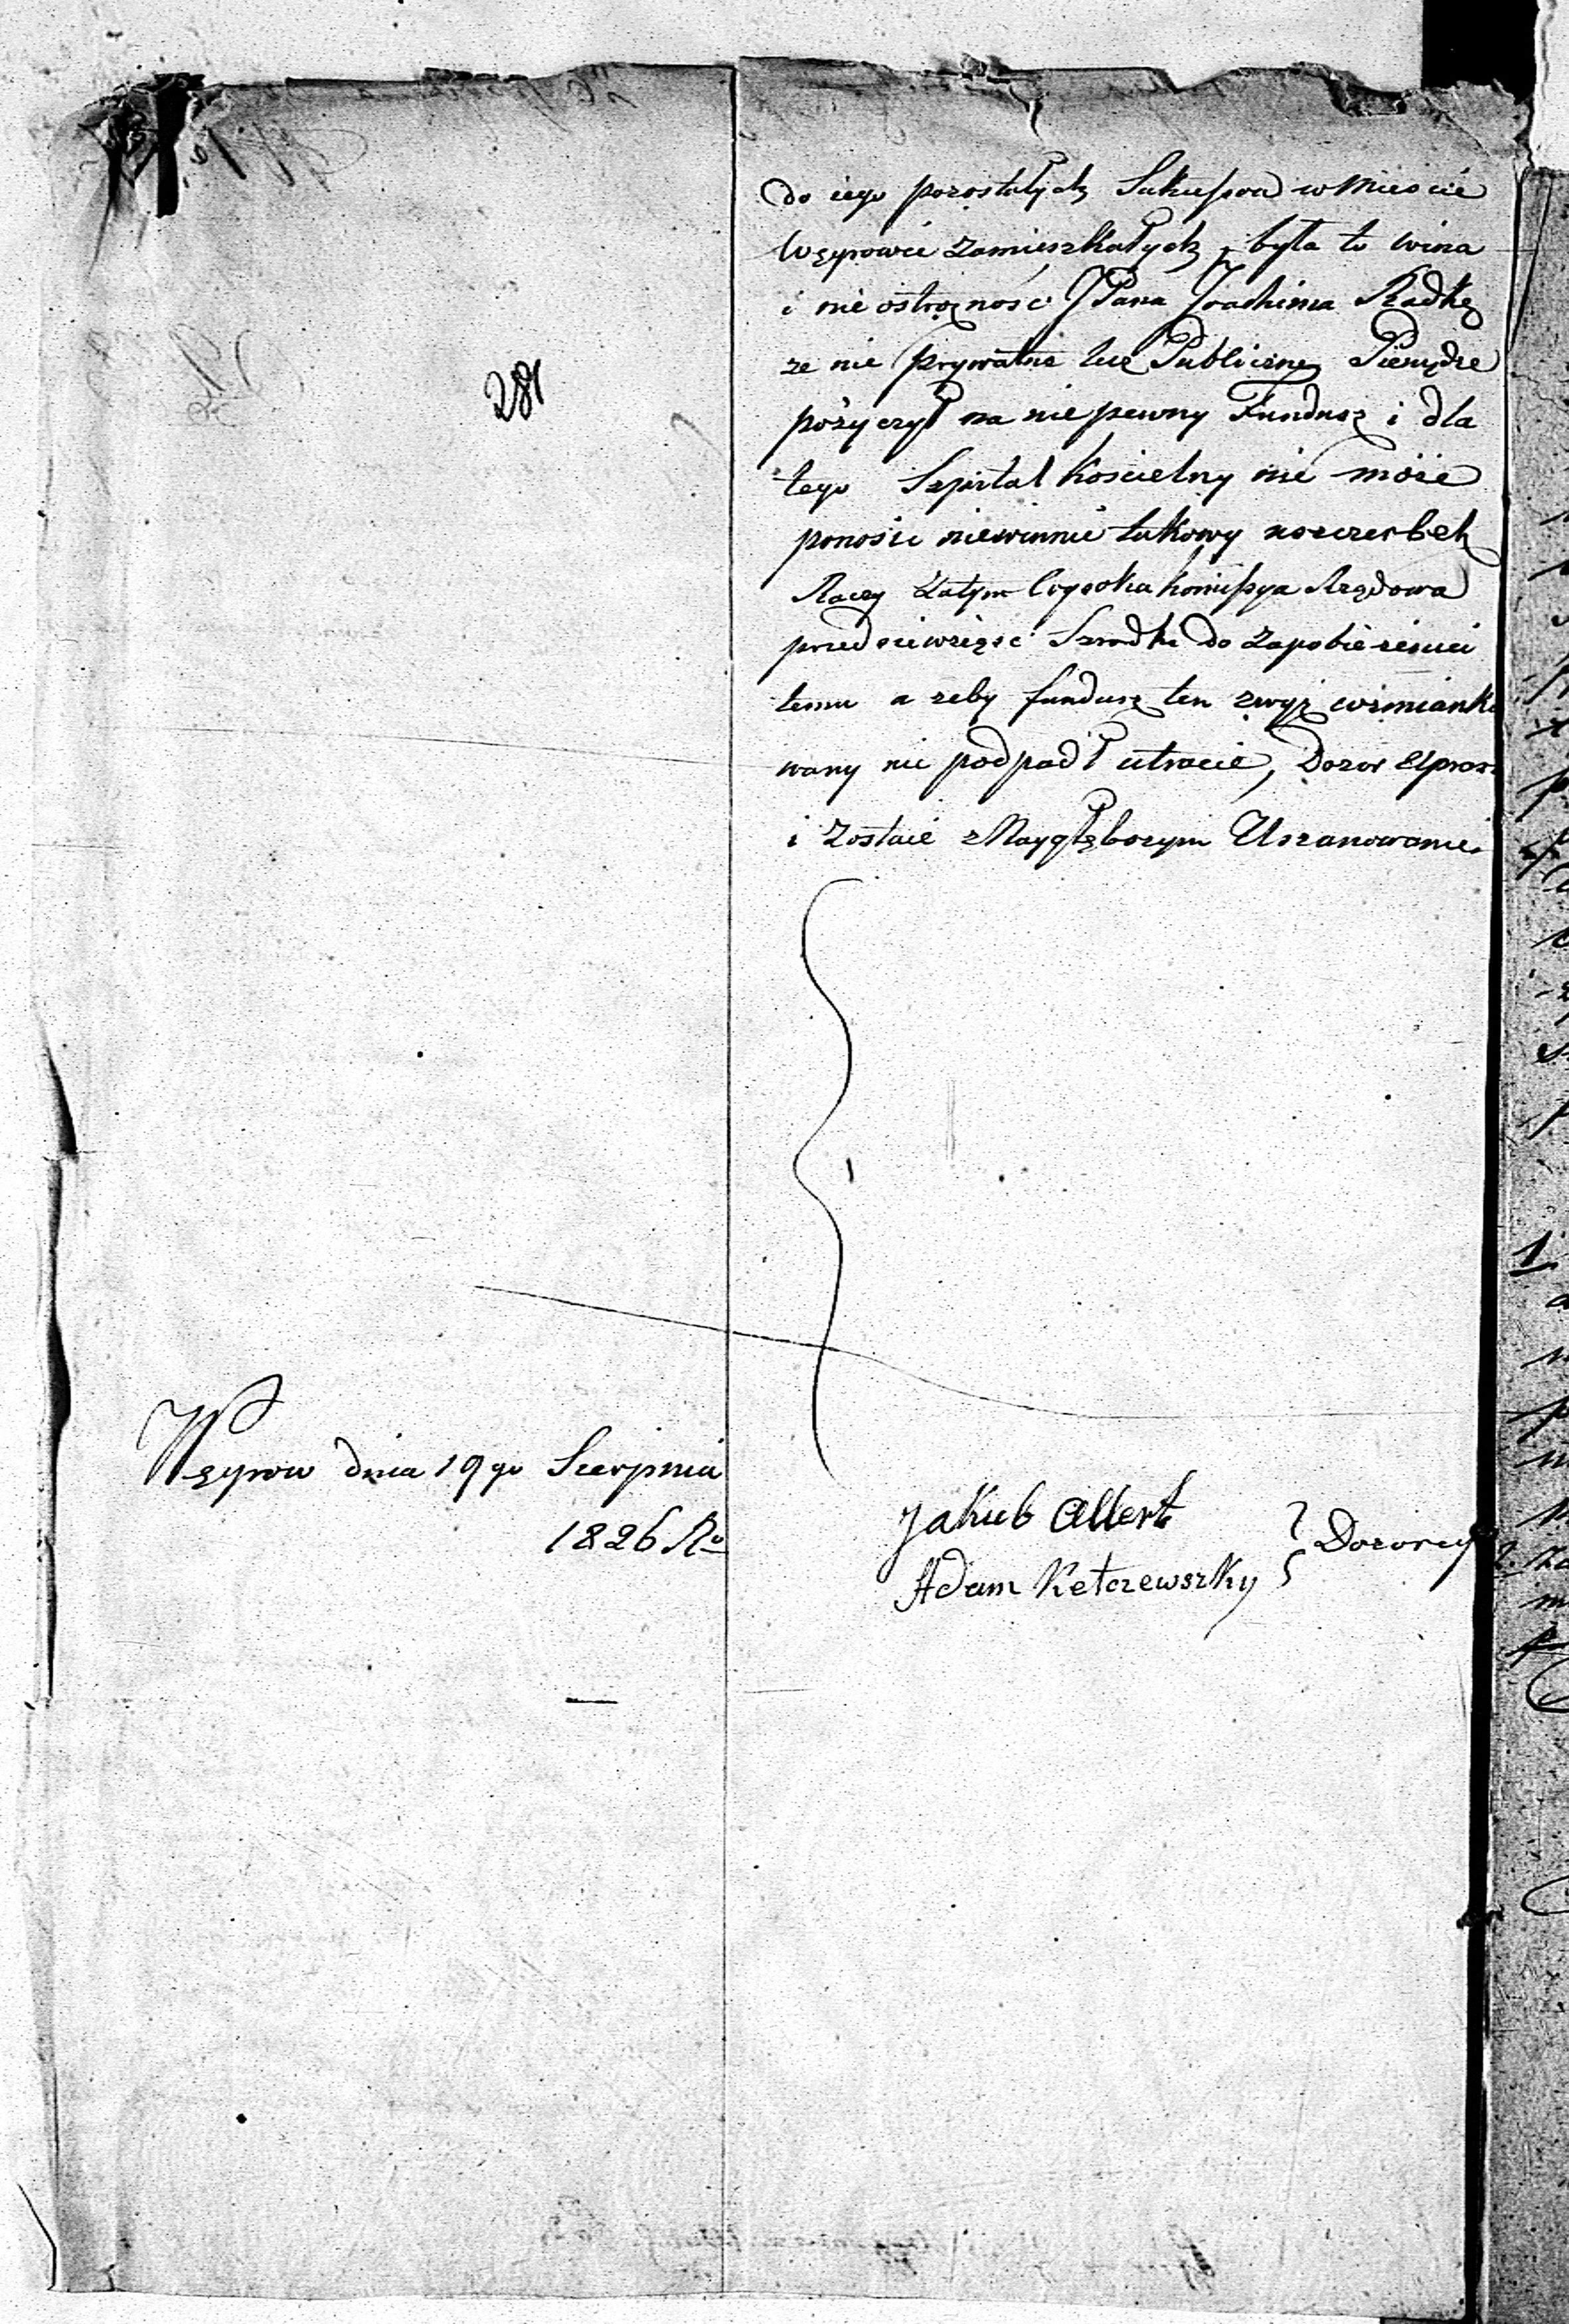 281
do iego pozostałych Sukcessorów w Mieście
Węgrowie Zamieszkałych, była to wina
i nie ostrożność JPana Joachima Radke
ze nie prywatne lecz Publiczne Pieniądze
pożyczył na nie pewny Fundusz i dla
tego Szpital Kościelny nie może
ponosić niewinnie takowy uszczerbek
Raczy Zatym Wysoka Komissya Rządowa
przedsiewziąść Szrodki do zapobieżenia
temu a zeby fundusz ten zwyż wzmianko
wany nie podpadł utracie, Dozor Uprasz
i Zostaie z Naygłębszym Uszanowaniem
Węgrow dnia 19go Sierpnia
1826 Ro
Jakub Allert
Adam Ketczewszky
Dozorcy